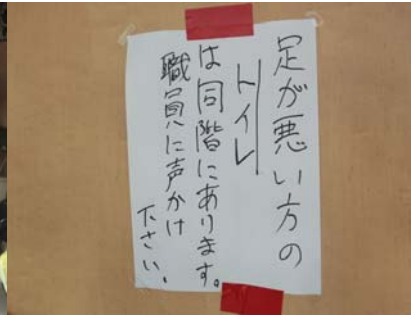 足が悪い方の
トイレ
は同階にあります。
職員に声かけ
下さい。